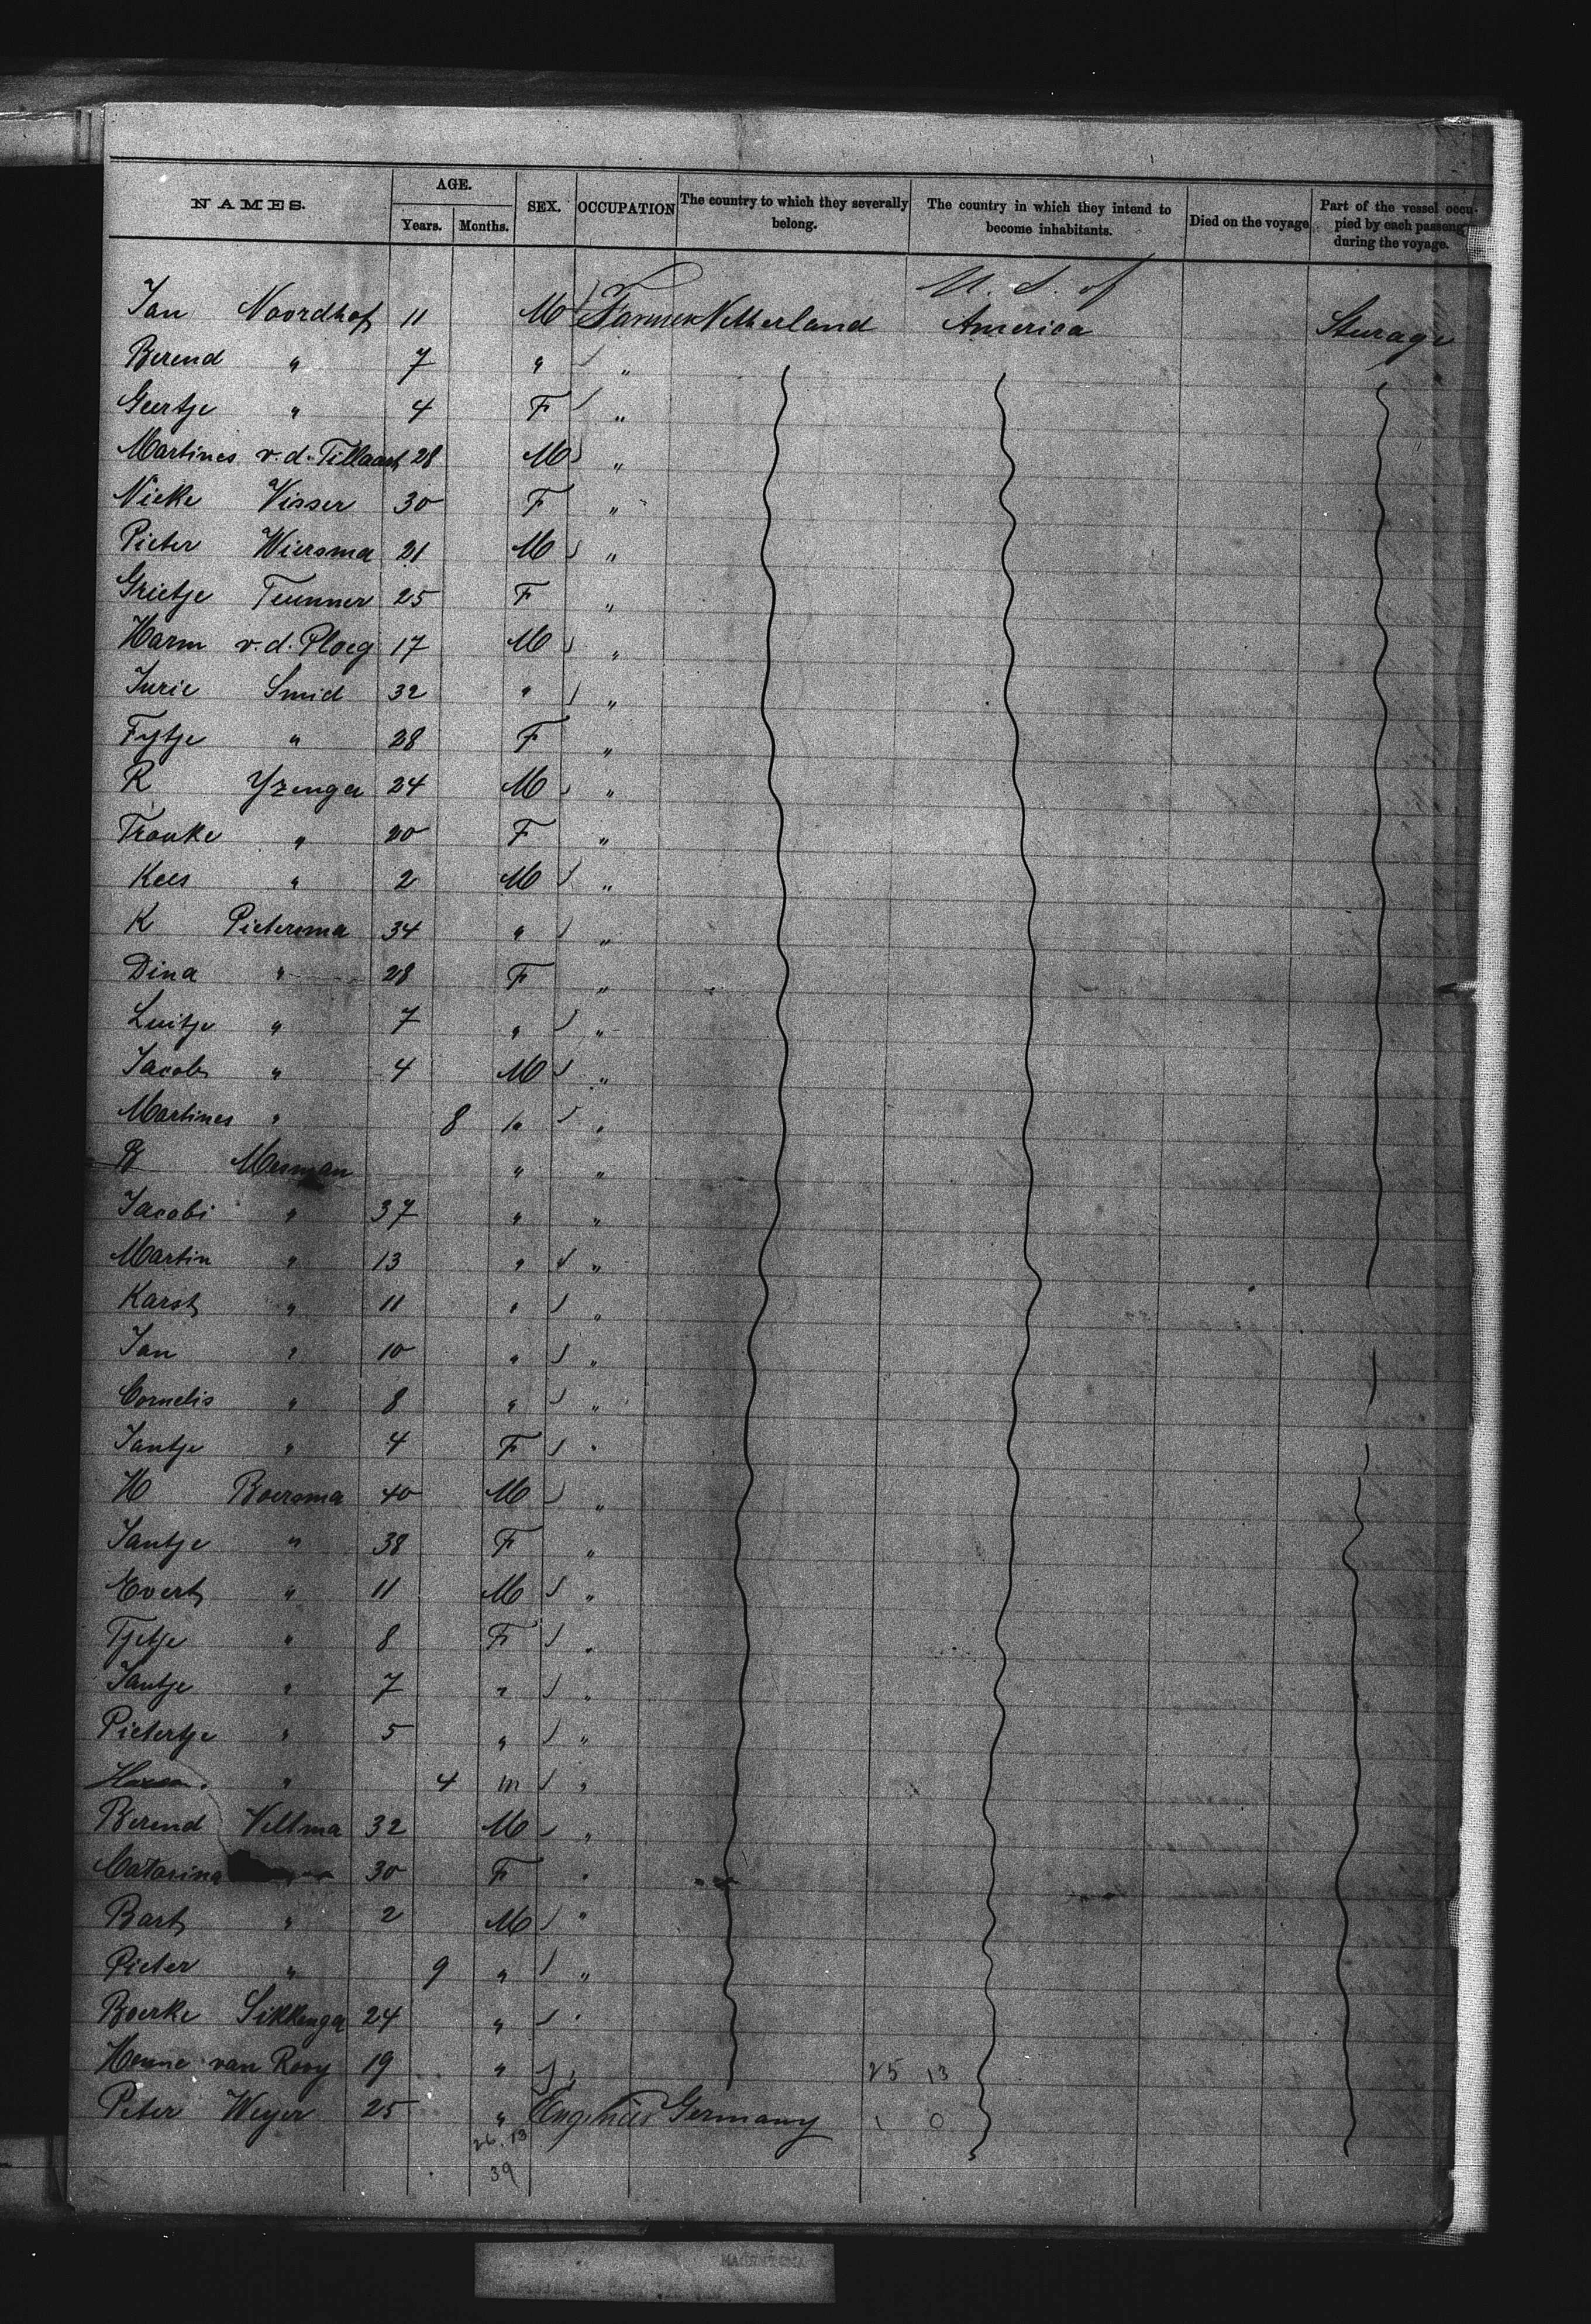 NAMES. AGE. Years. Months. SEX. OCCUPATION The country to which they severally belong. The country in which they intend to become inhabitants. Died on the voyage Part of the vessel occupied by each passeng during the voyage.
U. S. of
Jan Noordhof 11 M Farmer Netherland America Sturage
Berend " 7 " "
Geertje " 4 F "
Martines v.d. Tillaart 28 M "
Nieke Visser 30 F "
Pieter Wiersma 21 M "
Grietje Teunner 25 F "
Harm v.d. Ploeg 17 M "
Jurie Smid 32 " "
Fytje " 28 F "
R Yzenga 24 M "
Trouke " 20 F "
Kees " 2 M "
K Pietersma 34 " "
Dina " 28 F "
Luitje " 7 " "
Jacob " 4 M "
Martines " 8 " "
B Mesman " "
Jacobi " 37 " "
Martin " 13 " "
Karst " 11 " "
Jan " 10 " "
Cornelis " 8 " "
Jantje " 4 F "
H Boersma 40 M "
Jantje " 38 F "
Evert " 11 M "
Tjetje " 8 F "
Jantje " 7 " "
Pietertje " 5 " "
" 4 m "
Berend Veltma 32 M "
Catarina 30 F "
Bart " 2 M "
Pieter " 9 " "
Boerke Sikkenga 24 " "
Henne van Rooy 19 " " 25 13
Peter Weyer 25 " Germany 1 0
26. 13
39